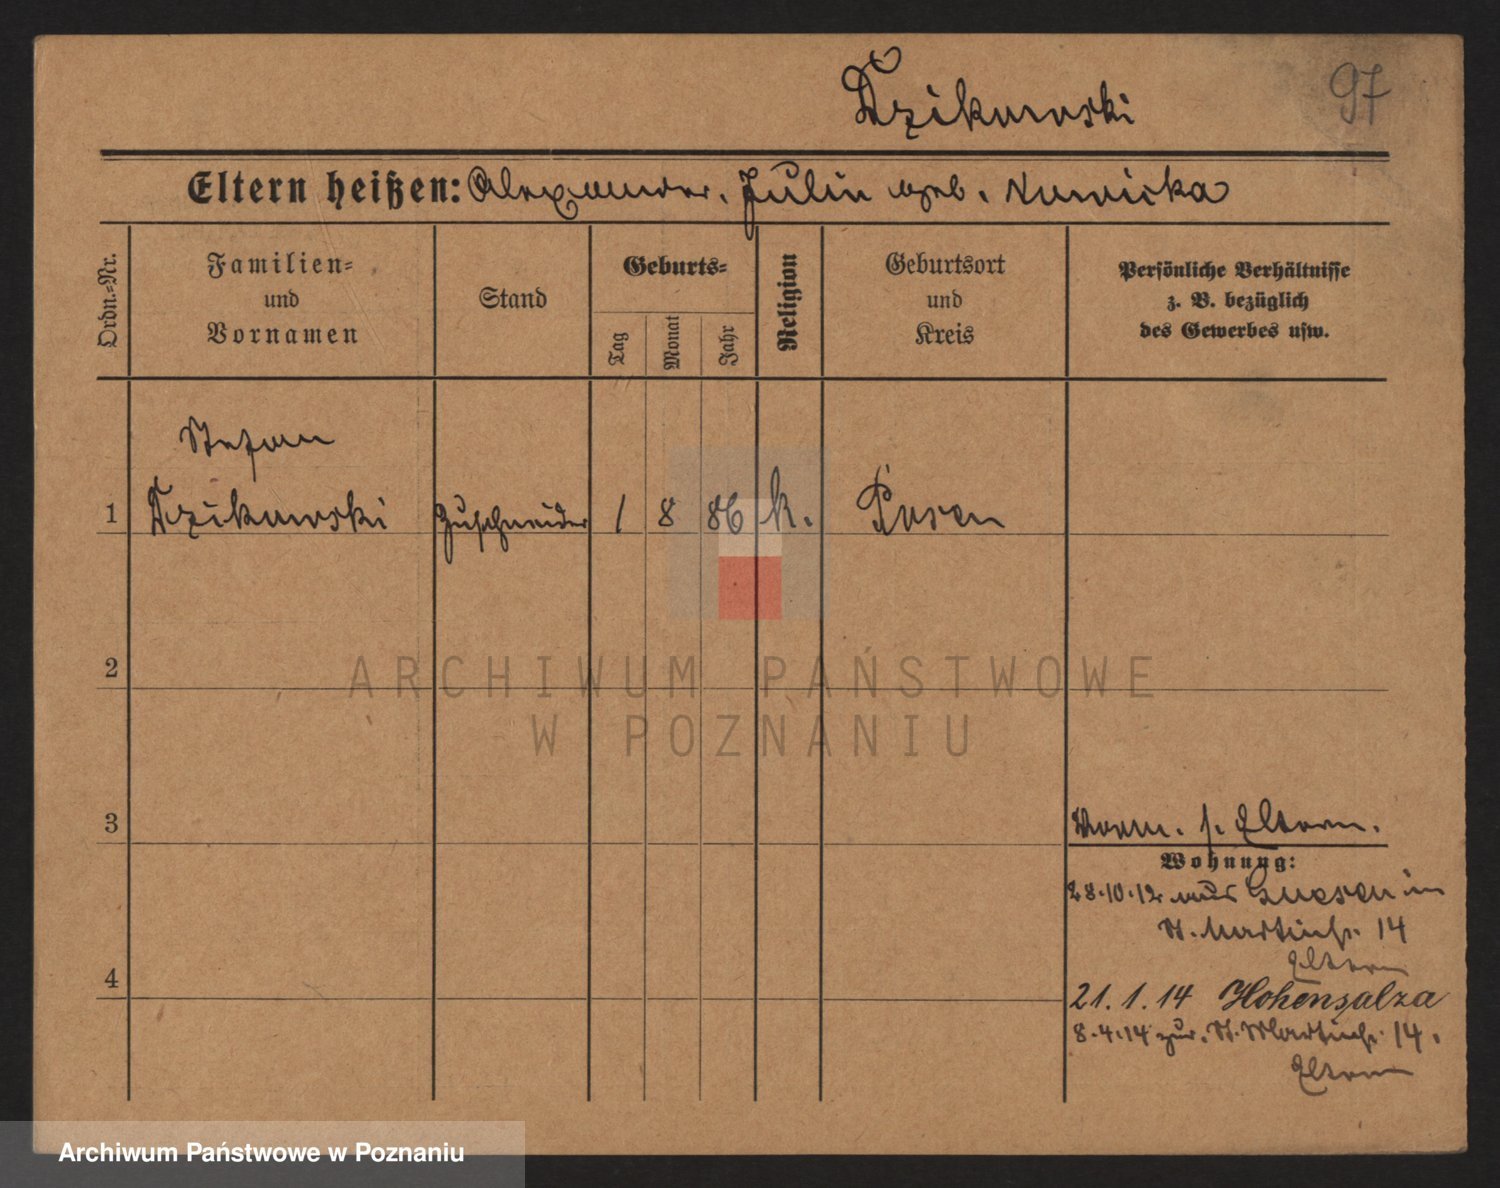 Dzikowski
97
Eltern heißen: Alexander, Julie geb. Nawicka
Ordn.-Nr.
Familien-
und
Vornamen
Stand
Geburts-
Tag
Monat
Jahr
Religion
Geburtsort
und
Kreis
Persönliche Verhältnisse
z. B. bezüglich
des Gewerbes usw.
Stefan
1 Dzikowski Zuschneider 1 8 86 k. Posen
2
ARCHIWUM PAŃSTWOWE
W POZNANIU
3
Vorm. s. Eltern.
Wohnung:
28.10.12 aus Gnesen in
St. Martinstr. 14
Eltern
4
21. 1. 14 Hohensalza
8.4.14 zur. St. Martinstr. 14.
Eltern
Archiwum Państwowe w Poznaniu